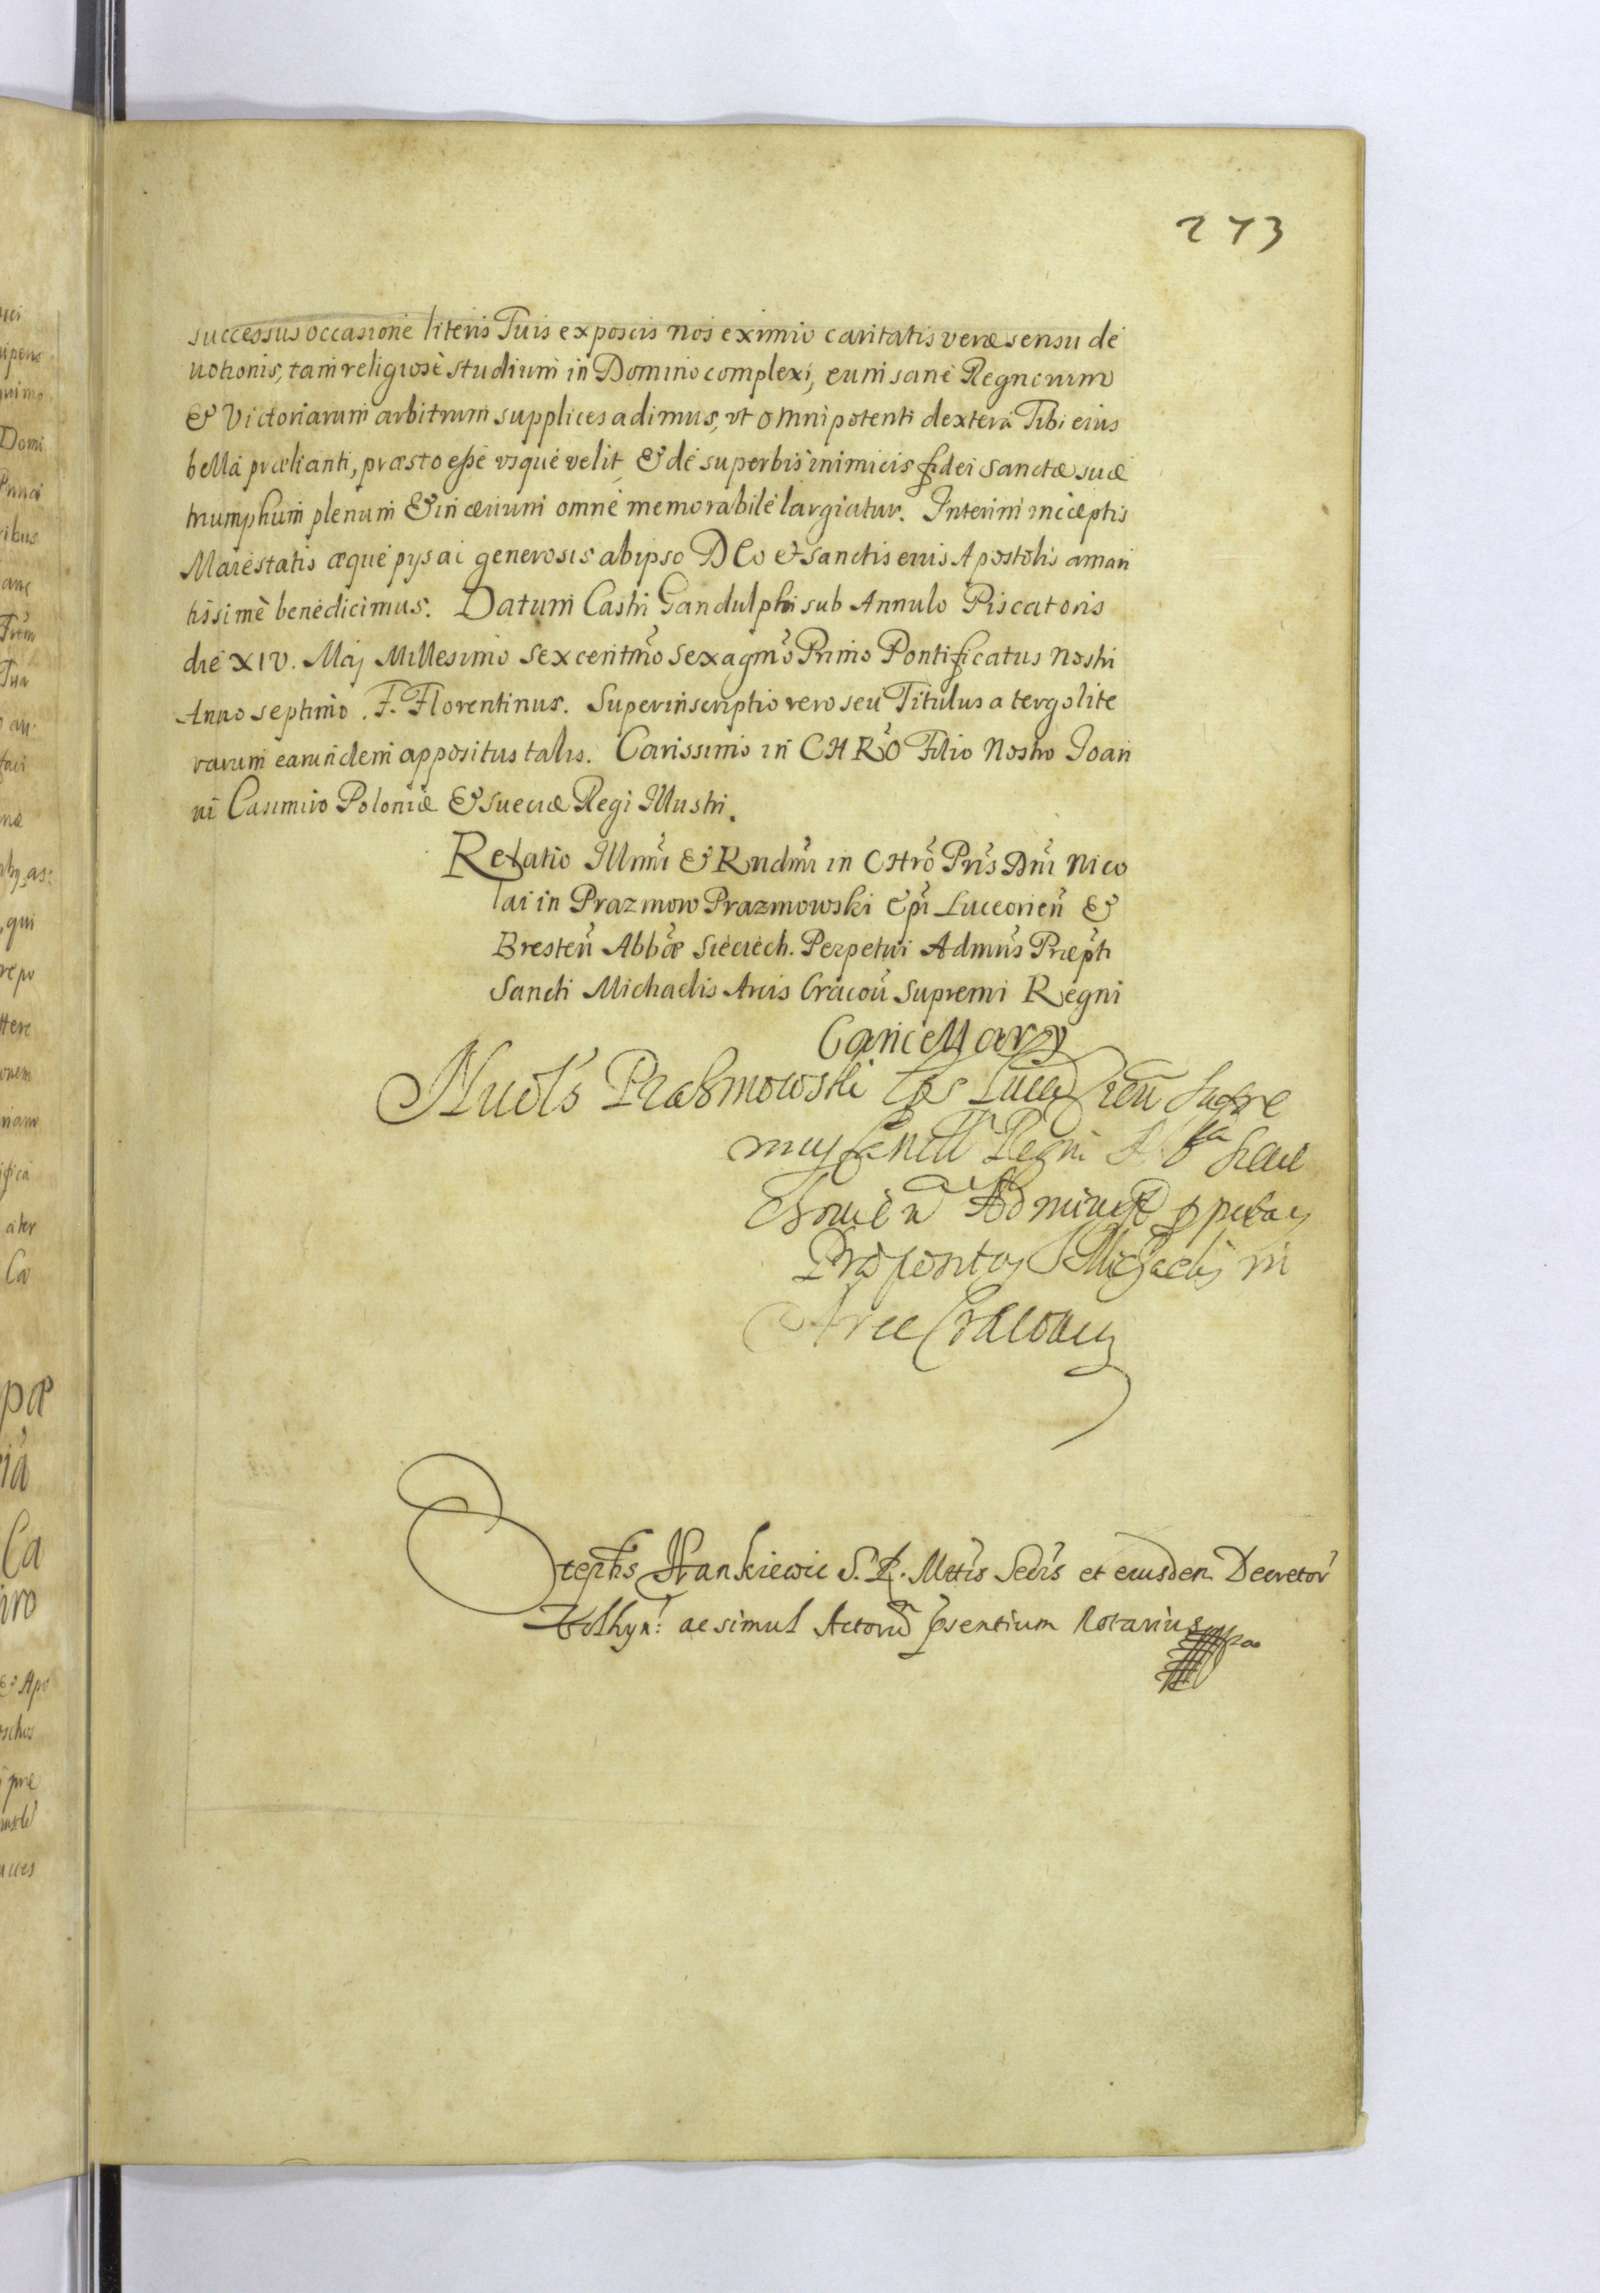 273
successus occasione literis Tuis exposcis nos eximio caritatis veræ sensu de
uotionis, tam religiosè studium in Domino complexi, eum sanè Regnorum
& Victoriarum arbitrum supplices adimus, vt omnipotenti dextera Tibi eius
bella prælianti, præsto esse vsque velit, & de superbis inimicis fidei Sanctæ suæ
triumphum plenum & in æuum omne memorabile largiatur. Interim inceptis
Maiestatis æque pys ac generosis ab ipso DEo et Sanctis eius Apostolis aman
tissimè benedicimus. Datum Castri Gandulphi sub Annulo Piscatoris
die XIV. May Millesimo Sexcentmo Sexagmo Primo Pontificatus Nostri
Anno septimo. F. Florentinus. Superinscriptio vero seu Titulus a tergo lite
rarum earundem appositus talis. Carissimo in CHRO Filio Nostro Joan
ni Casimiro Poloniæ & Sueciæ Regi Illustri.
Relatio Illmi & Rndmi in CHro Pris Dni Nico
lai in Prazmow Prazmowski Epi Luceorien &
Bresten Abbæ Sieciech. Perpetui Admns Præpti
Sancti Michaelis Arcis Cracou Supremi Regni
Cancellary
Prazmowski Eps Supre
mus Regni
Præpositus S Michaelis in
Arce
Stephs Hankiewic S. R. Mttis Secris et eiusdem Decretor
Volhyn: ac simul Actoru psentium Notarius mpa